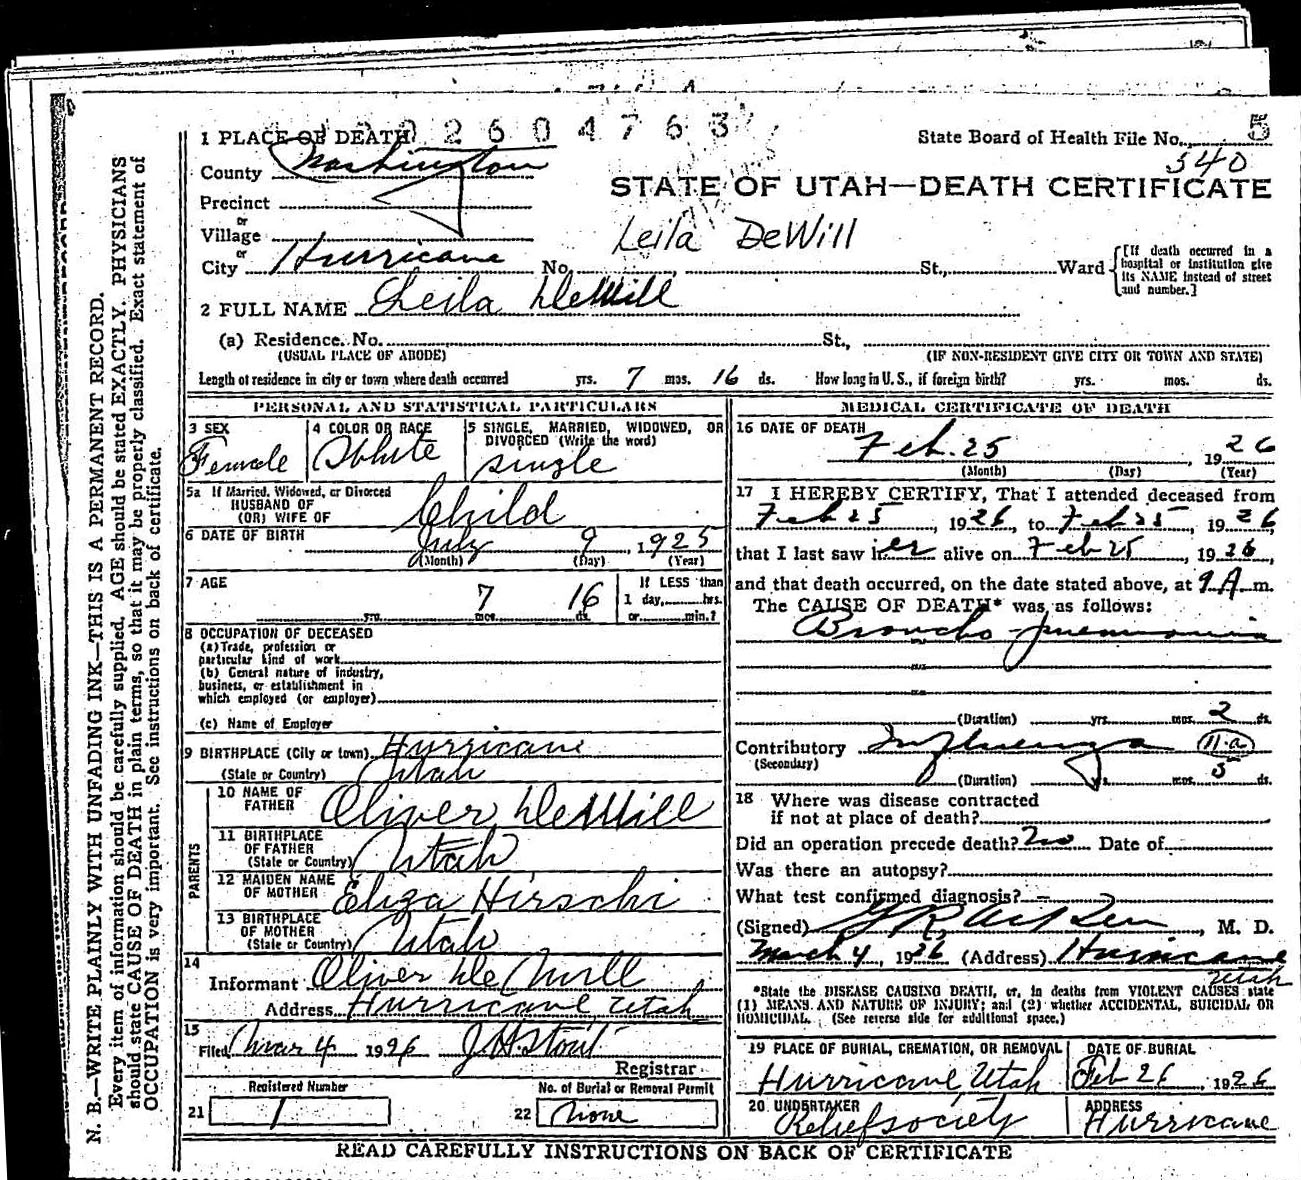 1 PLACE OF DEATH 2604763
State Board of Health File No. 5
340
County Washington
STATE OF UTAH—DEATH CERTIFICATE
Precinct
or
Village
Leila DeWill
or
City Hurricane No. St., Ward
[If death occurred in a hospital or institution give its NAME instead of street and number.]
2 FULL NAME Leila DeMill
(a) Residence. No. St.,
(USUAL PLACE OF ABODE) (IF NON-RESIDENT GIVE CITY OR TOWN AND STATE)
Length of residence in city or town where death occurred yrs. 7 mos. 16 ds. How long in U. S., if foreign birth? yrs. mos. ds.
PERSONAL AND STATISTICAL PARTICULARS
3 SEX
Female
4 COLOR OR RACE
White
5 SINGLE, MARRIED, WIDOWED, OR
DIVORCED (Write the word)
single
5a If Married, Widowed, or Divorced
HUSBAND OF
(OR) WIFE OF
Child
6 DATE OF BIRTH
July 9, 1925
(Month) (Day) (Year)
7 AGE
7 16
yrs. mos. ds.
If LESS than
1 day, hrs.
or min.?
8 OCCUPATION OF DECEASED
(a) Trade, profession or
particular kind of work
(b) General nature of industry,
business, or establishment in
which employed (or employer)
(c) Name of Employer
9 BIRTHPLACE (City or town) Hurricane
(State or Country) Utah
PARENTS
10 NAME OF
FATHER Oliver DeMill
11 BIRTHPLACE
OF FATHER
(State or Country) Utah
12 MAIDEN NAME
OF MOTHER Eliza Hirschi
13 BIRTHPLACE
OF MOTHER
(State or Country) Utah
14
Informant Oliver DeMill
Address Hurricane Utah
15
Filed Mar 4 1926 J H Stout
Registrar
Registered Number
21 1
No. of Burial or Removal Permit
22 none
MEDICAL CERTIFICATE OF DEATH
16 DATE OF DEATH
Feb. 25, 1926
(Month) (Day) (Year)
17 I HEREBY CERTIFY, That I attended deceased from
Feb 25, 1926, to Feb 25, 1926
that I last saw her alive on Feb 25, 1926,
and that death occurred, on the date stated above, at 9 A m.
The CAUSE OF DEATH* was as follows:
Broncho-pneumonia
(Duration) yrs. mos. 2 ds.
Contributory Influenza 11-a
(Secondary)
(Duration) yrs. mos. 5 ds.
18 Where was disease contracted
if not at place of death?
Did an operation precede death? No Date of
Was there an autopsy?
What test confirmed diagnosis? —
(Signed) M. D.
March 4, 1926 (Address) Hurricane
Utah
*State the DISEASE CAUSING DEATH, or, in deaths from VIOLENT CAUSES state
(1) MEANS AND NATURE OF INJURY; and (2) whether ACCIDENTAL, SUICIDAL OR
HOMICIDAL. (See reverse side for additional space.)
19 PLACE OF BURIAL, CREMATION, OR REMOVAL
Hurricane, Utah
DATE OF BURIAL
Feb 26, 1926
20 UNDERTAKER
Relief society
ADDRESS
Hurricane
READ CAREFULLY INSTRUCTIONS ON BACK OF CERTIFICATE
N. B.—WRITE PLAINLY WITH UNFADING INK—THIS IS A PERMANENT RECORD.
Every item of information should be carefully supplied. AGE should be stated EXACTLY. PHYSICIANS
should state CAUSE OF DEATH in plain terms, so that it may be properly classified. Exact statement of
OCCUPATION is very important. See instructions on back of certificate.